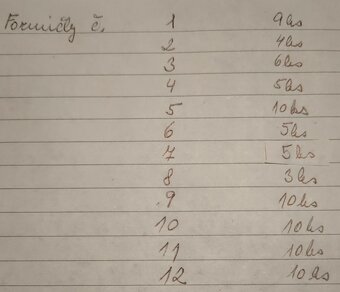 Formičky č. 1 9ks
2 4ks
3 6ks
4 5ks
5 10ks
6 5ks
7 5ks
8 3ks
9 10ks
10 10ks
11 10ks
12 10ks